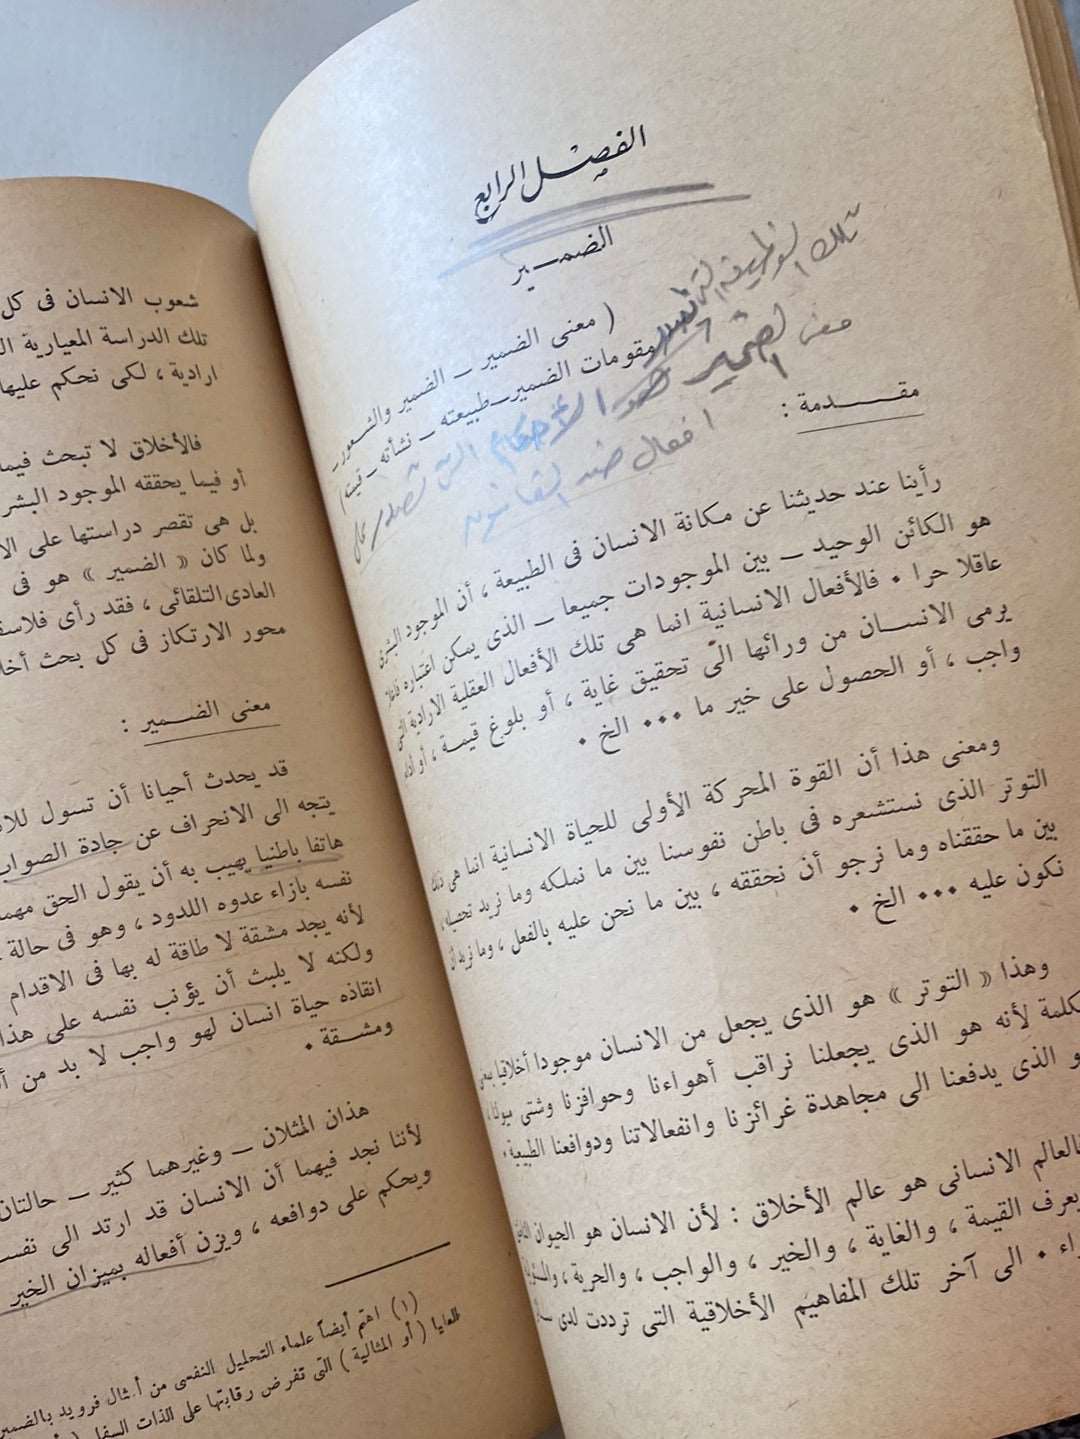 الفصل الرابع
الضمــير
( معنى الضمير ــ الضمير والشعور ــ
مقومات الضمير ــ طبيعته ــ نشأته ــ قيمته )
تلك الوظيفة التى
معنى الضمير
الأحكام التى
افعال ضد القانون
مقــــدمة :
رأينا عند حديثنا عن مكانة الانسان فى الطبيعة ، أن الموجود البشرى
هو الكائن الوحيد ــ بين الموجودات جميعا ــ الذى يمكن اعتباره فاعلا
عاقلا حرا ٠ فالأفعال الانسانية انما هى تلك الأفعال العقلية الارادية التى
يرمى الانســان من ورائها الى تحقيق غاية ، أو بلوغ قيمــة ، أو أداء
واجب ، أو الحصول على خير ما ٠٠٠ الخ ٠
ومعنى هذا أن القوة المحركة الأولى للحياة الانسانية انما هى ذلك
التوتر الذى نستشعره فى باطن نفوسنا بين ما نملكه وما نريد تحصيله ،
بين ما حققناه وما نرجو أن نحققه ، بين ما نحن عليه بالفعل ، وما نريد أن
نكون عليه ٠٠٠ الخ ٠
وهذا « التوتر » هو الذى يجعل من الانسان موجودا أخلاقيا بمعنى
كلمة لأنه هو الذى يجعلنا نراقب أهواءنا وحوافزنا وشتى ميولنا ،
و الذى يدفعنا الى مجاهدة غرائزنا وانفعالاتنا ودوافعنا الطبيعية ٠
بالعالم الانسانى هو عالم الأخلاق : لأن الانسان هو الحيوان
يعرف القيمة ، والغاية ، والخير ، والواجب ، والحرية ،
اء ٠ الى آخر تلك المفاهيم الأخلاقية التى ترددت لدى
شعوب الانسان فى كل
تلك الدراسة المعيارية
ارادية ، لكى نحكم عليها
فالأخلاق لا تبحث فيما
أو فيما يحققه الموجود البشر
بل هى تقصر دراستها على
ولما كان « الضمير » هو فى
العادى التلقائى ، فقد رأى فلاسفة
محور الارتكاز فى كل بحث أخلا
معنى الضــمير :
قد يحدث أحيانا أن تسول
يتجه الى الانحراف عن جادة الصواب
هاتفا باطنيا يهيب به أن يقول الحق مهما
نفسه بازاء عدوه اللدود ، وهو فى حالة
لأنه يجد مشقة لا طاقة له بها فى الاقدام
ولكنه لا يلبث أن يؤنب نفسه على هذا
انقاذه حياة انسان لهو واجب لا بد من
ومشــقة ٠
هذان المثلان ــ وغيرهما كثير ــ حالتان
لأننا نجد فيهما أن الانسان قد ارتد الى نفسه
ويحكم على دوافعه ، ويزن أفعاله بميزان الخير
(١) اهتم أيضاً علماء التحليل النفسى من أمثال فرويد بالضمير
العليا ( أو المثالية ) التى تفرض رقابتها على الذات السفلى